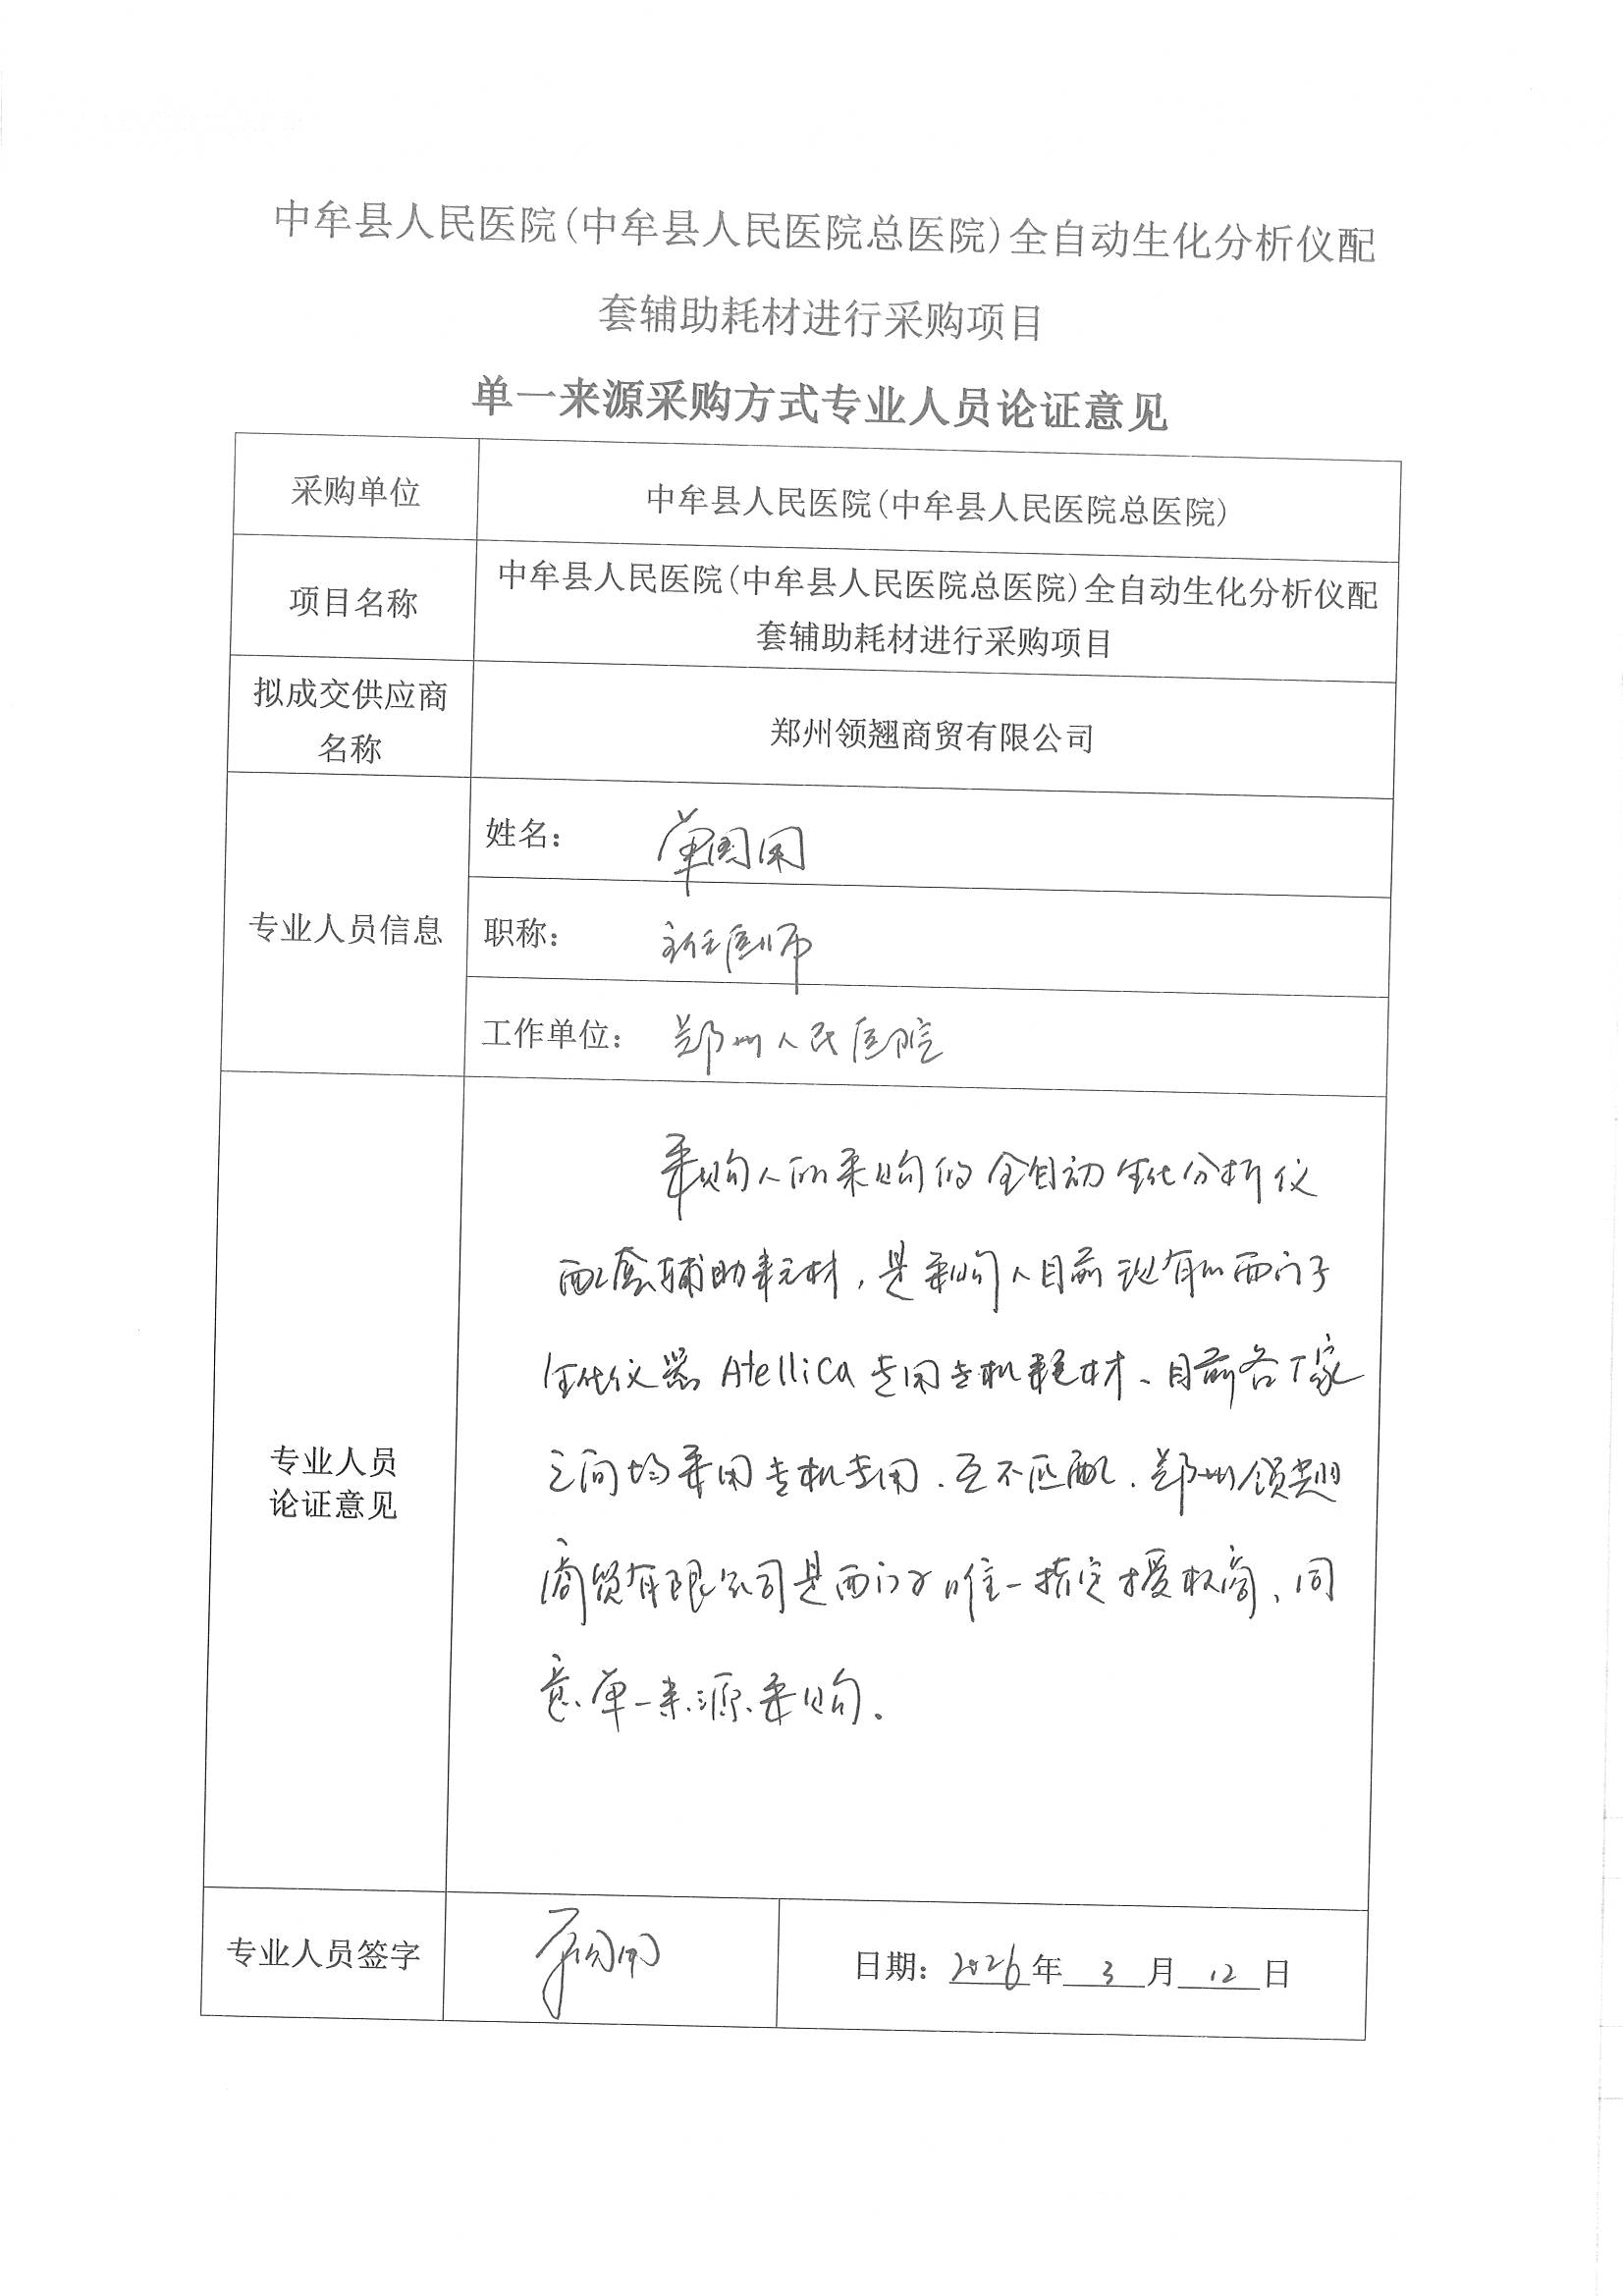 中牟县人民医院(中牟县人民医院总医院)全自动生化分析仪配
套辅助耗材进行采购项目
单一来源采购方式专业人员论证意见
采购单位
中牟县人民医院(中牟县人民医院总医院)
项目名称
中牟县人民医院(中牟县人民医院总医院)全自动生化分析仪配
套辅助耗材进行采购项目
拟成交供应商
名称
郑州领翘商贸有限公司
专业人员信息
姓名： 单国用
职称： 主任医师
工作单位： 郑州人民医院
专业人员
论证意见
采购人所采购的全自动生化分析仪
配套辅助耗材，是采购人目前现有的西门子
生化仪器Atellica专用专机耗材、目前各厂家
之间均采用专机专用、互不匹配、郑州领翘
商贸有限公司是西门子唯一指定授权商、同
意单一来源采购。
专业人员签字
日期：2026年 3 月 12 日